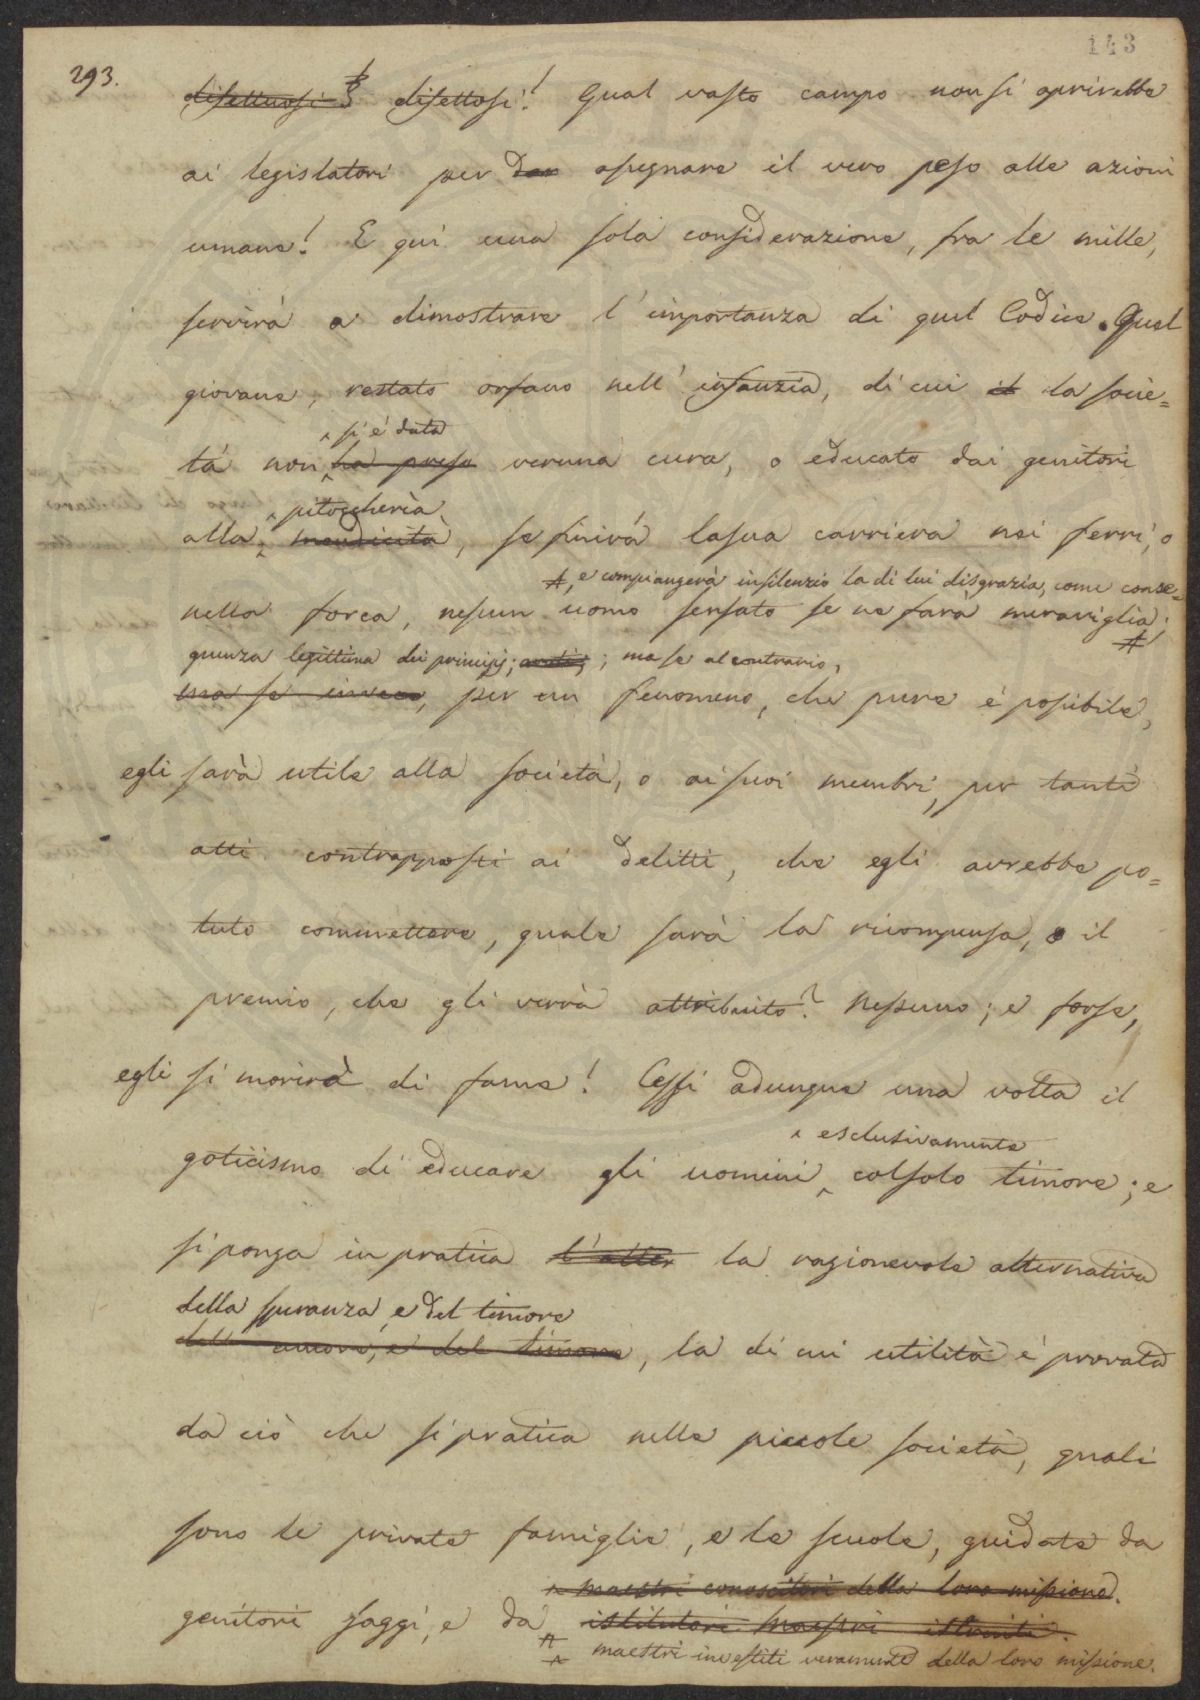 143
293.
difettuosi difettosi! Qual vasto campo non si aprirebbe
ai legislatori per dar assegnare il vero peso alle azioni
umane! E qui una sola considerazione, fra le mille,
servirà a dimostrare l'importanza di quel Codice. Quel
giovane, restato orfano nell'infanzia, di cui il la socie=
si è data
tà non ha preso veruna cura, o educato dai genitori
pitoccheria
alla mendicità, se finirà la sua carriera nei ferri, o
, e compiangerà in silenzio la di lui disgrazia, come conse=
nella forca, nessun uomo sensato se ne farà meraviglia;
guenza legittima dei principj; ; ma se al contrario,
ma se invece, per un fenomeno, che pure è possibile,
egli sarà utile alla società, o ai suoi membri, per tanti
atti contrapposti ai delitti, che egli avrebbe po=
tuto commettere, quale sarà la ricompensa, o il
premio, che gli verrà attribuito? Nessuno; e forse,
egli si morirà di fame! Cessi adunque una volta il
esclusivamente
goticismo di educare gli uomini col solo timore; e
si ponga in pratica l'alter la ragionevole alternativa
della speranza, e del timore
dell'amore, e del timore, la di cui utilità è provata
da ciò che si pratica nelle piccole società, quali
sono le private famiglie, e le scuole, guidate da
maestri conoscitori della loro missione.
genitori saggi, e da istitutori maestri istruiti.
maestri investiti veramente della loro missione.